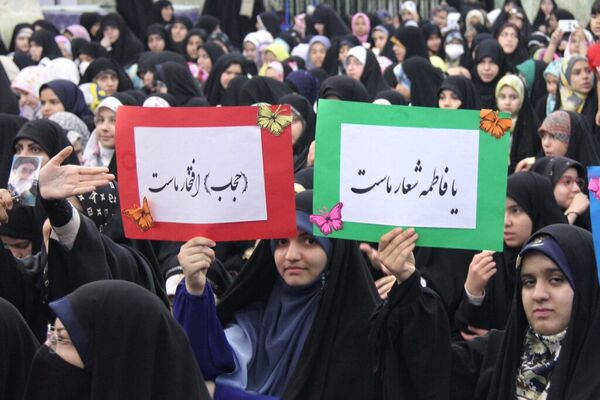 یا فاطمه شعار ماست
(حجاب) افتخار ماست